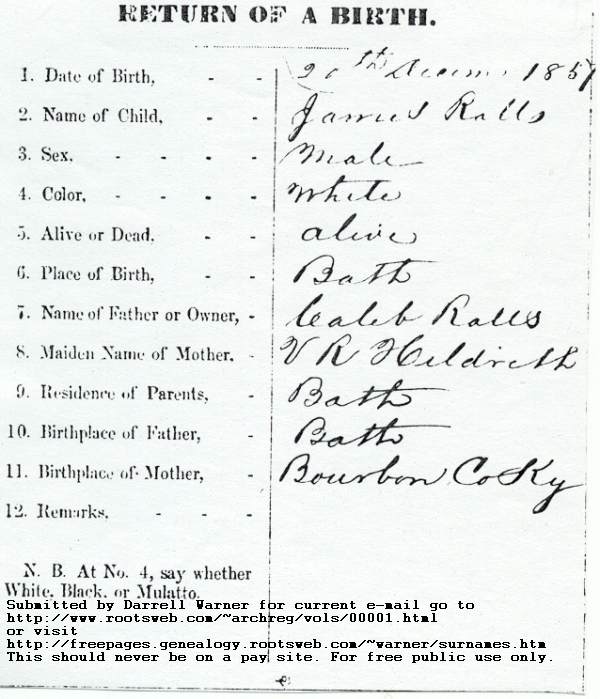 RETURN OF A BIRTH.
1. Date of Birth, - - 20th Decem. 1857
2. Name of Child, - - James Ralls
3. Sex, - - - - Male
4. Color, - - - - White
5. Alive or Dead. - - alive
6. Place of Birth, - - Bath
7. Name of Father or Owner, - Caleb Ralls
8. Maiden Name of Mother. - V R Hildreth
9. Residence of Parents, - Bath
10. Birthplace of Father, - Bath
11. Birthplace of Mother, - Bourbon Co Ky
12. Remarks. - - -
N. B. At No. 4, say whether
White, Black, or Mulatto.
Submitted by Darrell Warner for current e-mail go to
http://www.rootsweb.com/~archreg/vols/00001.html
or visit
http://freepages.genealogy.rootsweb.com/~warner/surnames.htm
This should never be on a pay site. For free public use only.